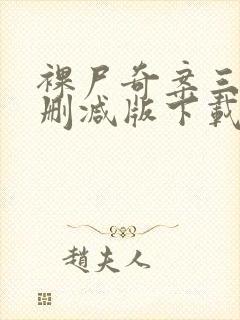 裸尸奇案三
删减版下载
趙夫人